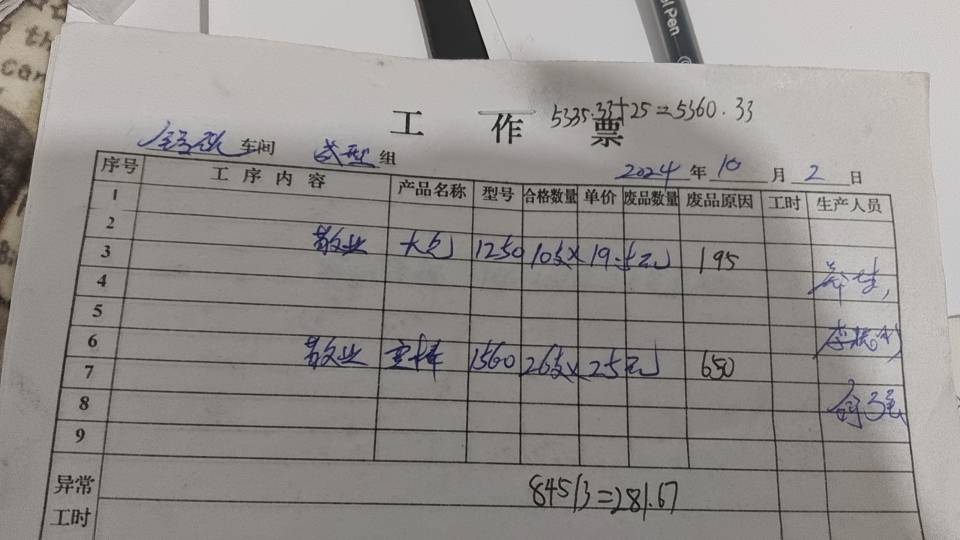 al Pen
5335.33+25=5360.33
工作票
车间 成型 组 2024 年 10 月 2 日
序号 工序内容 产品名称 型号 合格数量 单价 废品数量 废品原因 工时 生产人员
1
2
3 敬业 大包 1250 10支× 19.5元 195
4
5
6
7 敬业 1560 26支× 25元 650
8
9
异常工时
845/3=281.67